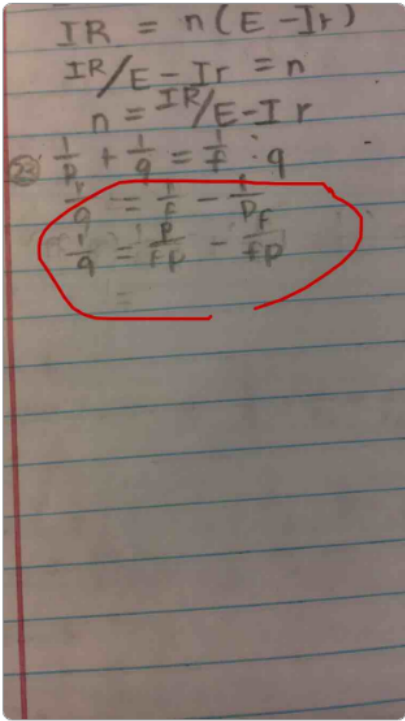 IR = n(E-Ir)
IR/E-Ir = n
n = IR/E-Ir
23 1/p + 1/q = 1/f : q
1/q = 1/f - 1/p
1/q = p/fp - f/fp
=